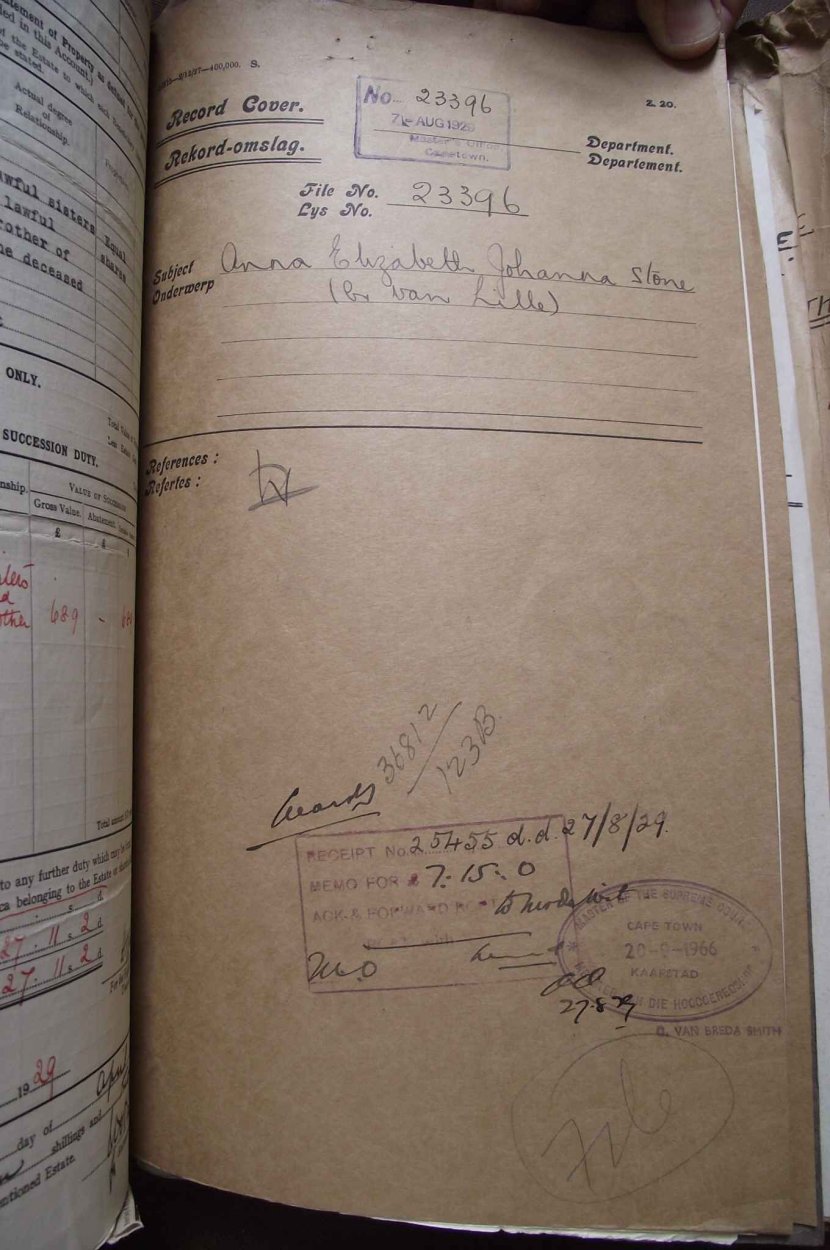 tement of Property as
ded in this Account.)
of the Estate in which such
be stated.
Actual degree
of
Relationship.
awful sisters Equal
lawful shares
rother of
he deceased
ONLY.
SUCCESSION DUTY.
nship.
VALUE OF SUCCESSION
Gross Value. Abatement.
£ £
689 - 689
Total amount
to any further duty which may be
ca belonging to the Estate
s. d.
27 : 11 s 2 d
27 . 11 s. 2 d
19 29
day of April
shillings and
entioned Estate.
—400,000. S.
Record Cover.
Rekord-omslag.
No. 23396
7 - AUG 1929
Master's Office,
Capetown.
Z. 20.
Department.
Departement.
File No.
Lys No.
23396
Subject
Onderwerp
Anna Elizabeth Johanna Stone
(b. van Lille)
References :
Refertes :
36812/123B
RECEIPT No. 25455 d.d. 27/8/29.
MEMO FOR £ 7-15-0
ACK & FORWARD
MASTER OF THE SUPREME COURT
CAPE TOWN
20-9-1966
KAAPSTAD
MEESTER VAN DIE HOOGGEREGSHOF
27.8.29
G. VAN BREDA SMITH
File